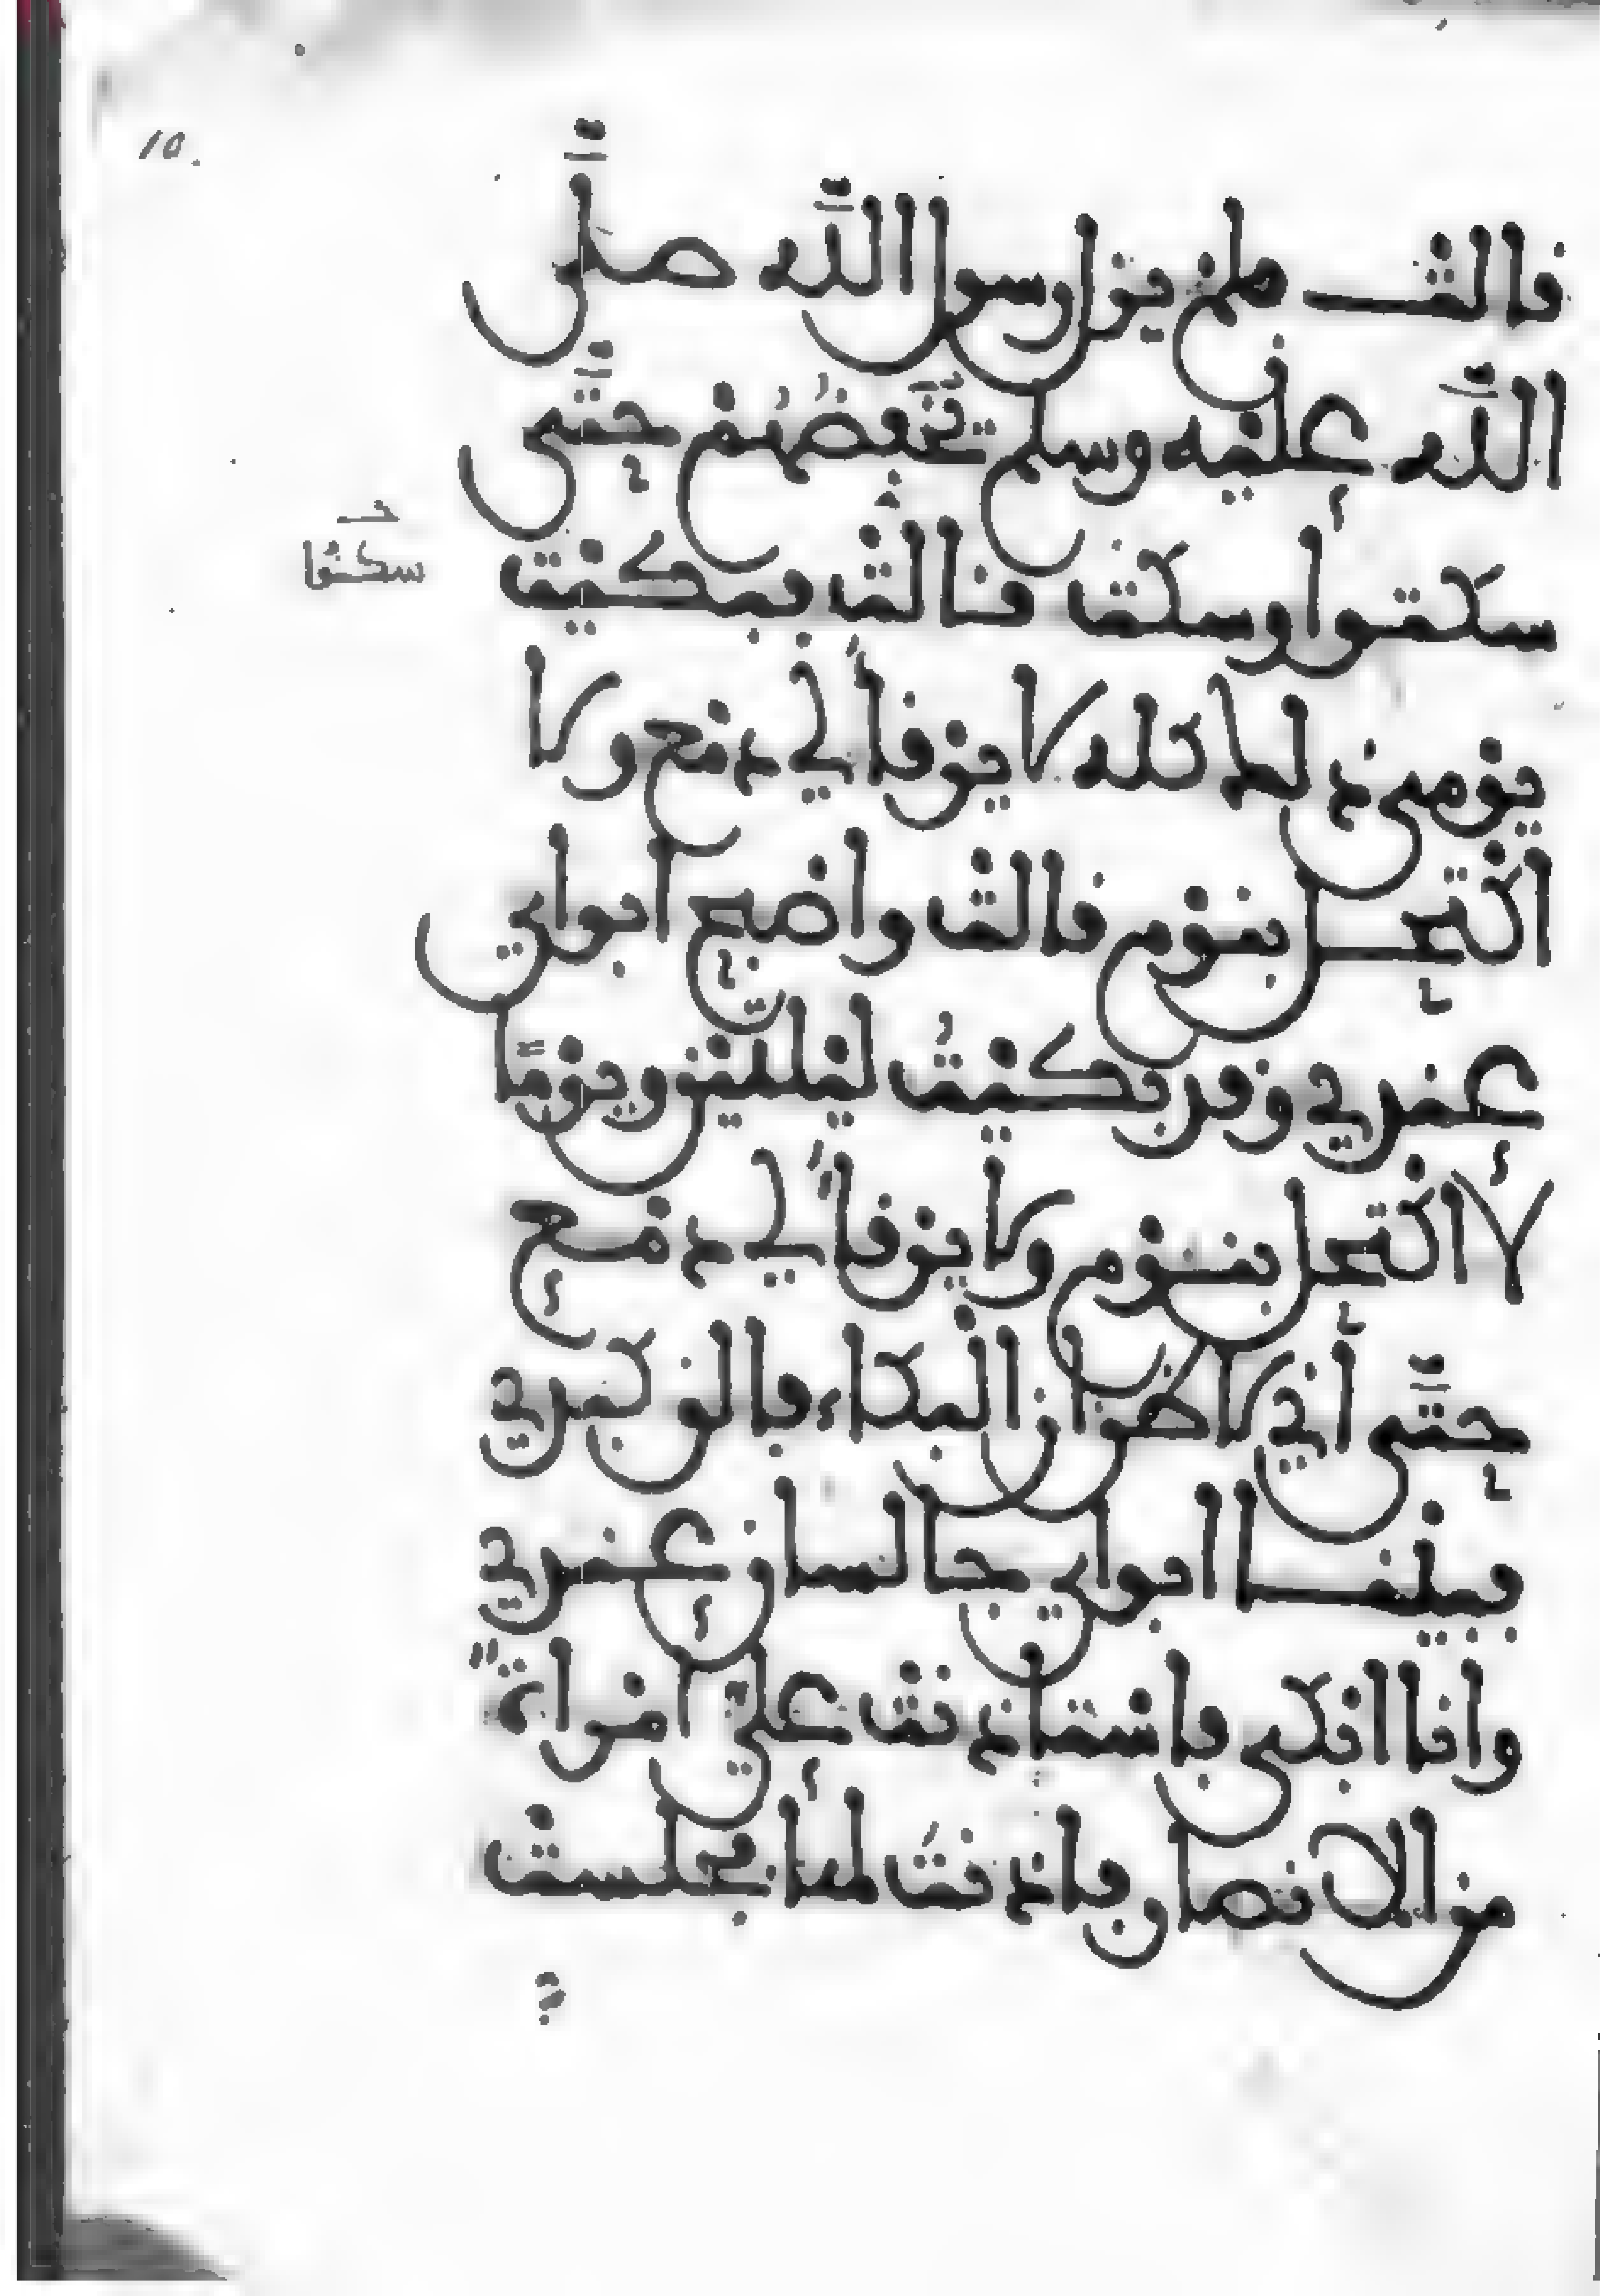 10.
قالت فلم يزل رسول الله صلى
الله عليه وسلم يخفضهم حتى
سكتوا وسكت قالت فبكيت
سكتوا
يومي ذلك كله لا يرقأ لي دمع ولا
اكتحل بنوم قالت واصبح أبواي
عندي وقد بكيت ليلتين ويومًا
لا اكتحل بنوم ولا يرقأ لي دمع
حتى أني لأظن أن البكاء فالق كبدي
فبينما أبواي جالسان عندي
وانا ابكي فاستاذنت علي امرأةٌ
من الانصار فاذنت لها فجلست